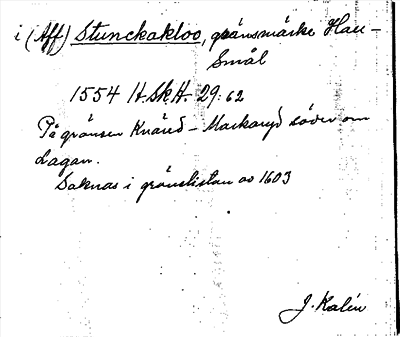 i (Aff) Stunckakloo, gränsmärke Hall-
Smål
1554 H.Sk.H. 29:62
På gränsen Knäred - Markaryd söder om
Lagan.
Saknas i gränslistan av 1603
J. Kalén